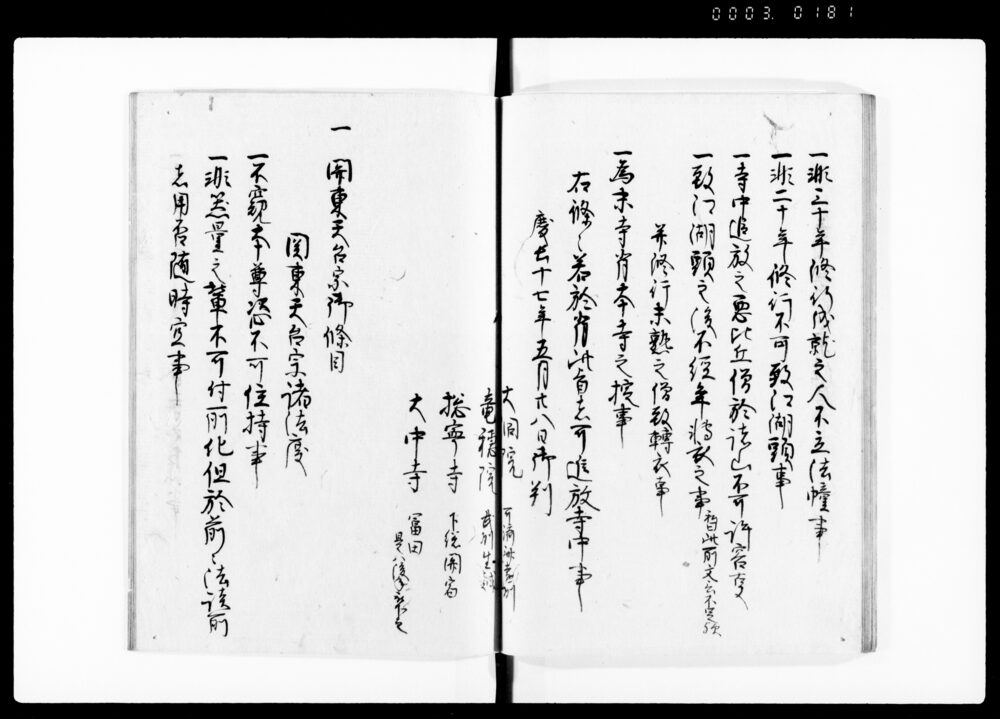 0003. 0181
一非三十年修行成就之人不立法幢事
一非二十年修行不可致江湖頭事
一寺中追放之悪比丘僧於諸山不可許容事
一致江湖頭之後不経年転衣之事
并修行未熟之僧致轉衣事
一為末寺背本寺之掟事
右條々若於背此旨者可追放寺中事
慶長十七年五月廿八日御判
大洞院
竜穏院
総寧寺 下総関宿
大中寺 冨田
一 関東天台宗御條目
関東天台宗諸法度
一不窺本尊恣不可住持事
一非器量之輩不可付所化但於前々法談所
者用否随時宜事